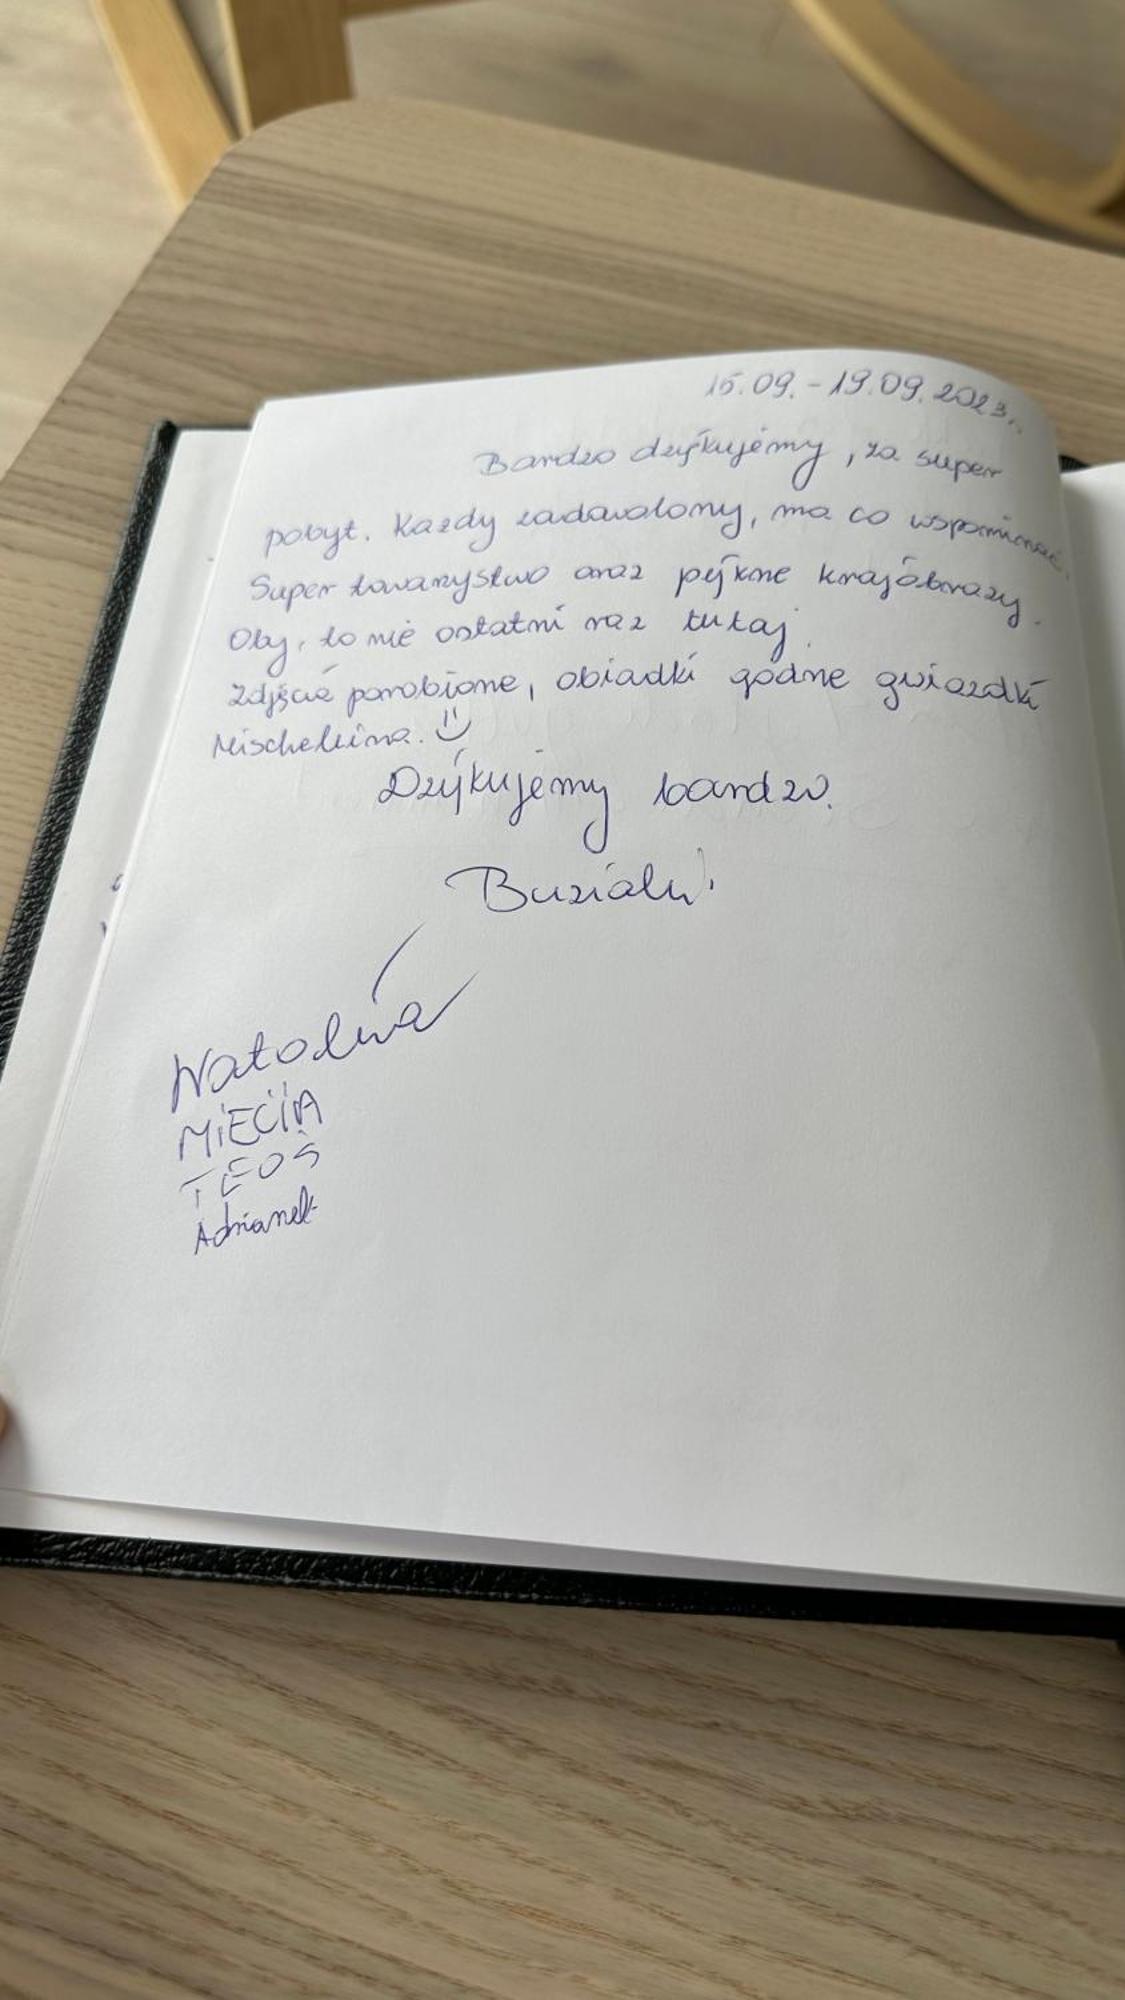 15.09. - 19.09.2023r.
Bardzo dziękujemy, za super
pobyt. Każdy zadowolony, ma co wspominać.
Super towarzystwo oraz piękne krajobrazy.
Oby, to nie ostatni raz tutaj.
Zdjęcia porobione, obiadki godne gwiazdki
Mischelina. :)
Dziękujemy bardzo.
Buziaki.
Natalia
MIECIA
TEOŚ
Adrianek